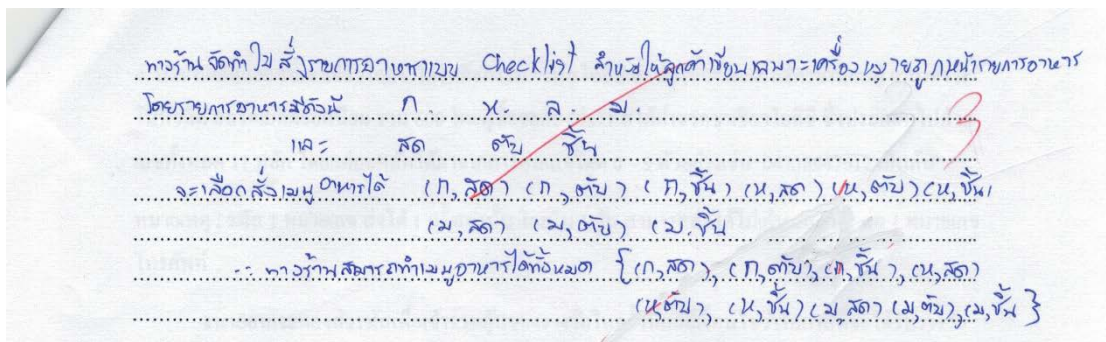 ทางร้านจัดทำใบสั่งรายการอาหารแบบ Checklist สำหรับให้ลูกค้าเขียนเฉพาะเครื่องหมายถูกหน้ารายการอาหาร
โดยรายการอาหารมีดังนี้ ก. ห. ล. ม.
และ สด ตับ ชิ้น
จะเลือกสั่งเมนูอาหารได้ (ก,สด) (ก,ตับ) (ก,ชิ้น) (ห,สด) (ห,ตับ) (ห,ชิ้น)
(ม,สด) (ม,ตับ) (ม,ชิ้น)
∴ ทางร้านสามารถทำเมนูอาหารได้ทั้งหมด {(ก,สด), (ก,ตับ), (ก,ชิ้น), (ห,สด)
(ห,ตับ), (ห,ชิ้น) (ม,สด) (ม,ตับ), (ม,ชิ้น}